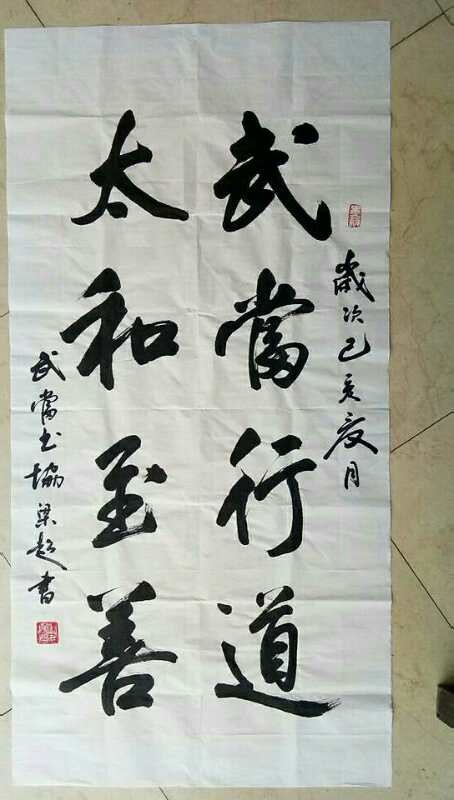 歲次己亥夏月
武當行道
太和至善
武當书協梁超書